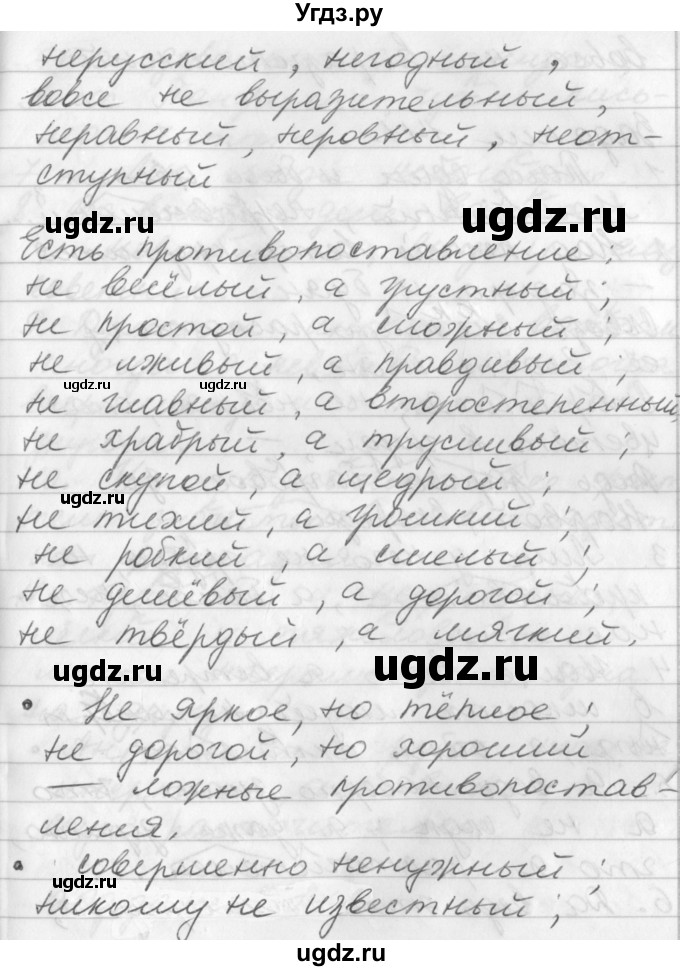 Угдз.ру
нерусский, негодный,
вовсе не выразительный,
неравный, неровный, неот-
ступный
ugdz.ru ugdz.ru
Есть противопоставление:
не весёлый, а грустный;
не простой, а сложный;
не лживый, а правдивый;
ugdz.ru ugdz.ru
не главный, а второстепенный,
не храбрый, а трусливый;
не скупой, а щедрый;
ugdz.ru
не тихий, а громкий;
не робкий, а смелый;
не дешёвый, а дорогой;
не твёрдый, а мягкий.
ugdz.ru ugdz.ru
Не яркое, но тёплое;
не дорогой, но хороший
— ложные противопостав-
ления.
совершенно ненужный;
ugdz.ru
никому не известный;
ugdz.ru